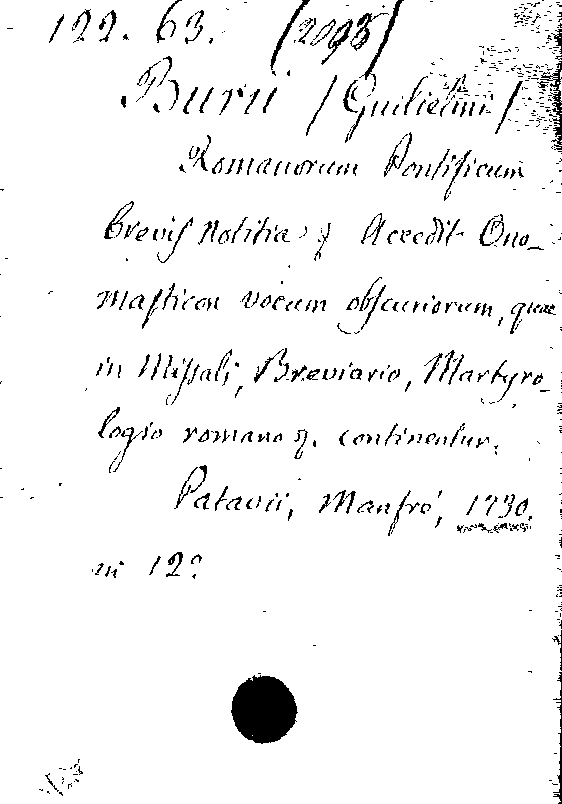 122. 63. (2098)
Burii / Guilielmi /
Romanorum Pontificum
brevis notitia & Accedit Ono-
masticon vocum obscuriorum, quae
in Missali, Breviario, Martyro-
logio romano &. continentur.
Patavii, Manfré, 1730.
in 12°